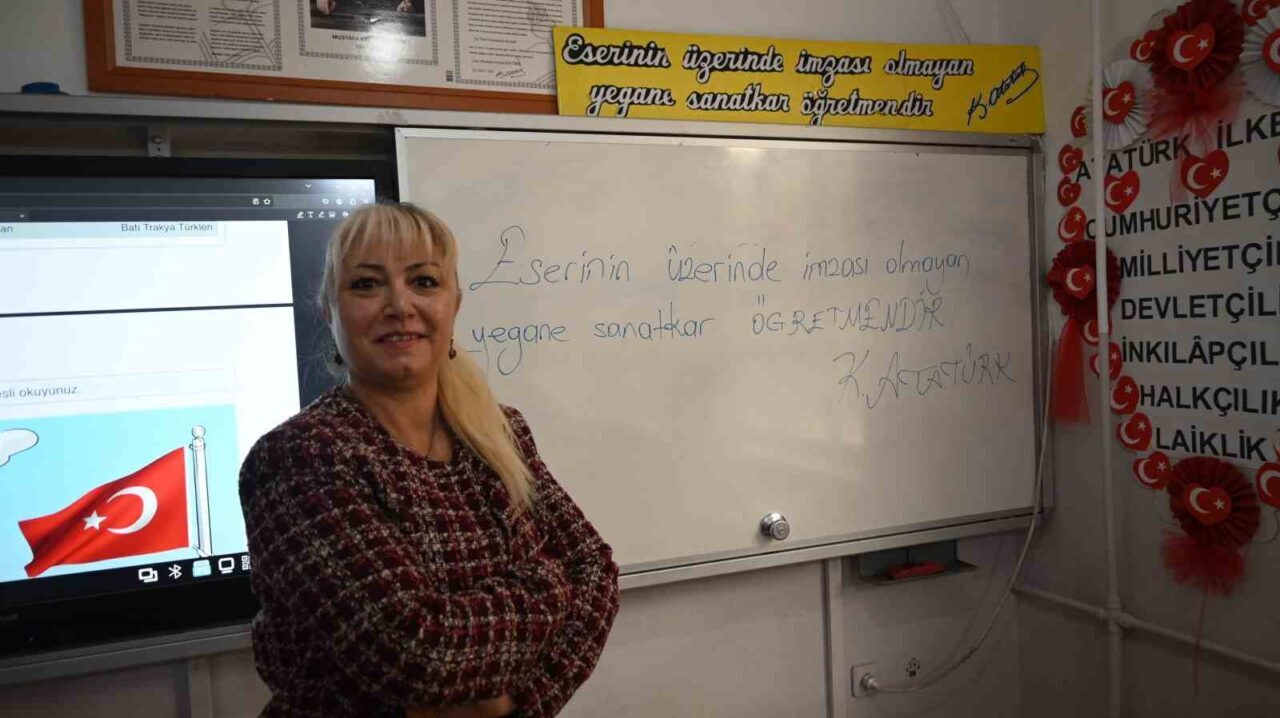 Eserinin üzerinde imzası olmayan
yegane sanatkar öğretmendir
K. Atatürk
Batı Trakya Türkleri
esli okuyunuz.
Eserinin üzerinde imzası olmayan
yegane sanatkar ÖĞRETMENDİR
K. ATATÜRK
ATATÜRK İLKE
CUMHURİYETÇ
MİLLİYETÇİ
DEVLETÇİL
İNKILÂPÇIL
HALKÇILIK
LAİKLİK